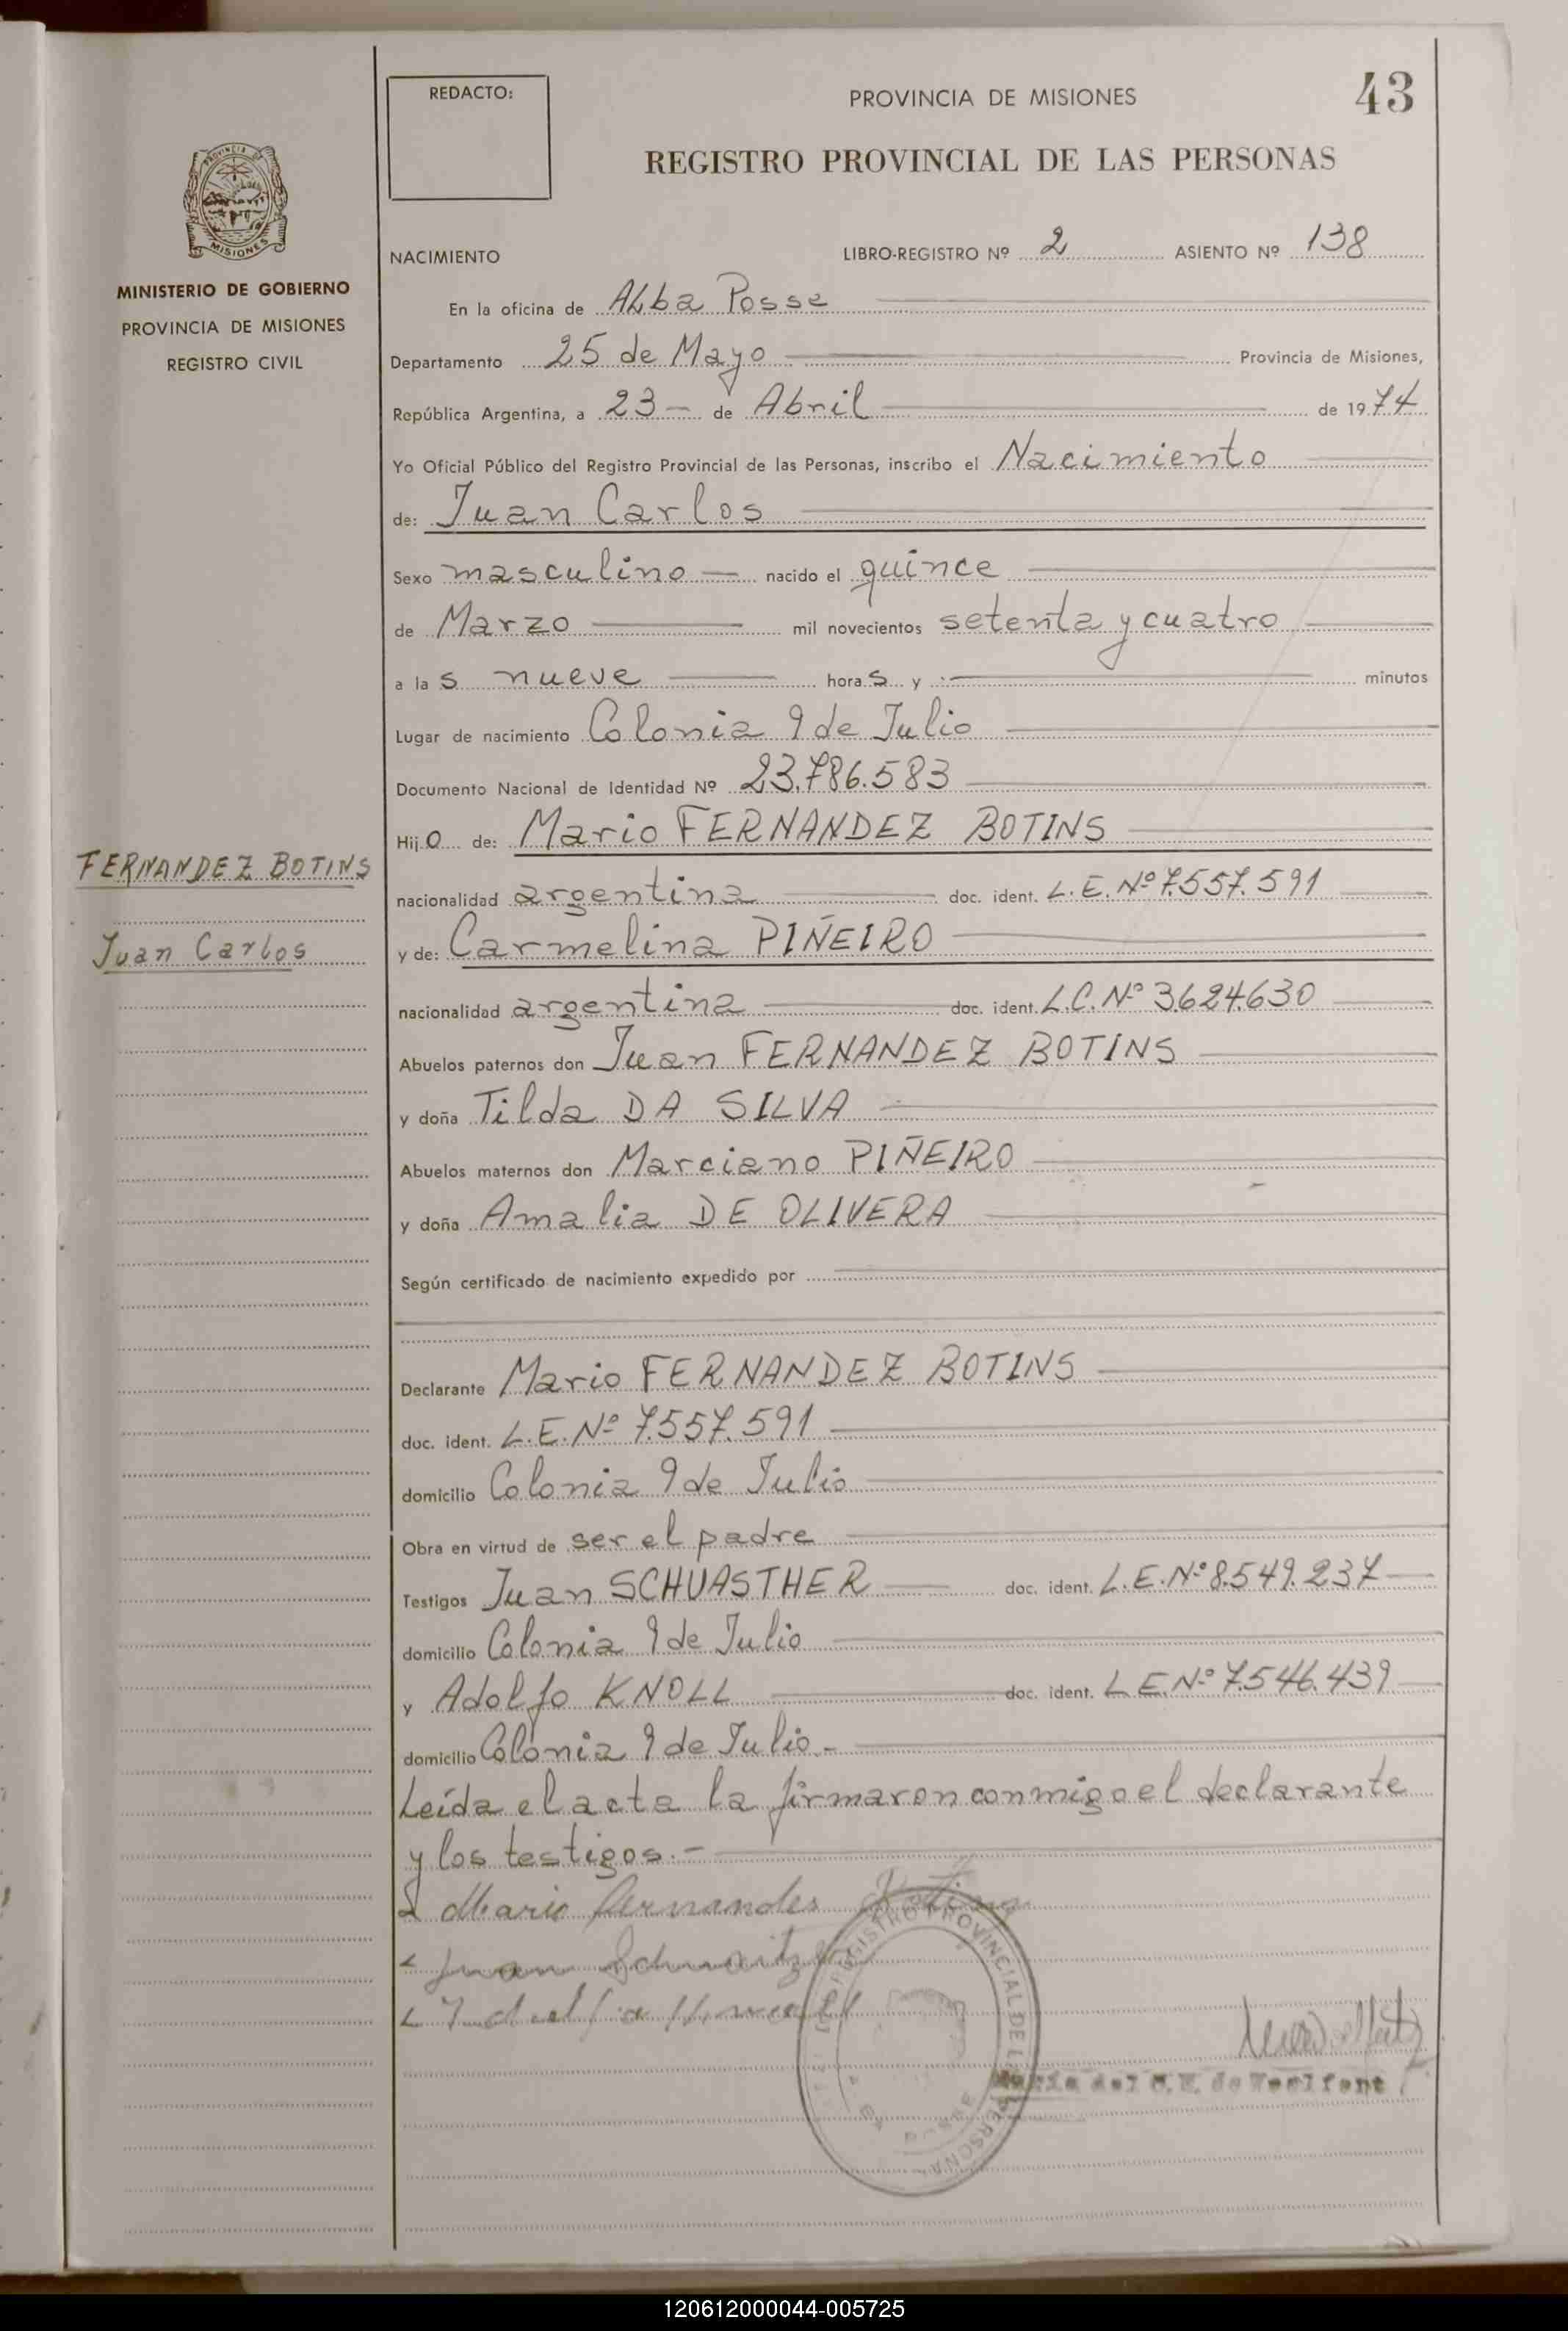 REDACTO:
PROVINCIA DE MISIONES
43
REGISTRO PROVINCIAL DE LAS PERSONAS
PROVINCIA DE
MISIONES
MINISTERIO DE GOBIERNO
PROVINCIA DE MISIONES
REGISTRO CIVIL
NACIMIENTO LIBRO-REGISTRO Nº 2 ASIENTO Nº 138
En la oficina de Alba Posse
Departamento 25 de Mayo Provincia de Misiones,
República Argentina, a 23 - de Abril de 1974
Yo Oficial Público del Registro Provincial de las Personas, inscribo el Nacimiento
de: Juan Carlos
Sexo masculino nacido el quince
de Marzo mil novecientos setenta y cuatro
a las nueve horas y minutos
Lugar de nacimiento Colonia 9 de Julio
Documento Nacional de Identidad Nº 23.786.583
Hijo de: Mario FERNANDEZ BOTINS
FERNANDEZ BOTINS
nacionalidad argentina doc. ident. L.E.Nº 7.557.591
Juan Carlos
y de: Carmelina PIÑEIRO
nacionalidad argentina doc. ident. L.C.Nº 3.624.630
Abuelos paternos don Juan FERNANDEZ BOTINS
y doña Tilda DA SILVA
Abuelos maternos don Marciano PIÑEIRO
y doña Amalia DE OLIVERA
Según certificado de nacimiento expedido por
Declarante Mario FERNANDEZ BOTINS
doc. ident. L.E.Nº 7.557.591
domicilio Colonia 9 de Julio
Obra en virtud de ser el padre
Testigos Juan SCHUASTHER doc. ident. L.E.Nº 8.549.237
domicilio Colonia 9 de Julio
y Adolfo KNOLL doc. ident. L.E.Nº 7.546.439
domicilio Colonia 9 de Julio.-
Leída el acta la firmaron conmigo el declarante
y los testigos.-
Mario Fernandes Botins
Juan
REGISTRO PROVINCIAL DE LAS PERSONAS
María del C. de
120612000044-005725